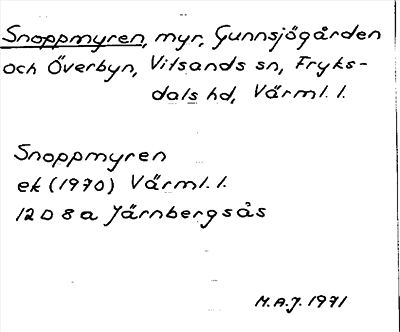 Snoppmyren, myr, Gunnsjögården
och Överbyn, Vitsands sn, Fryks-
dals hd, Värml. l.
Snoppmyren
ek (1970) Värml. l.
12 D 8 a Järnbergsås
M.A.J. 1971